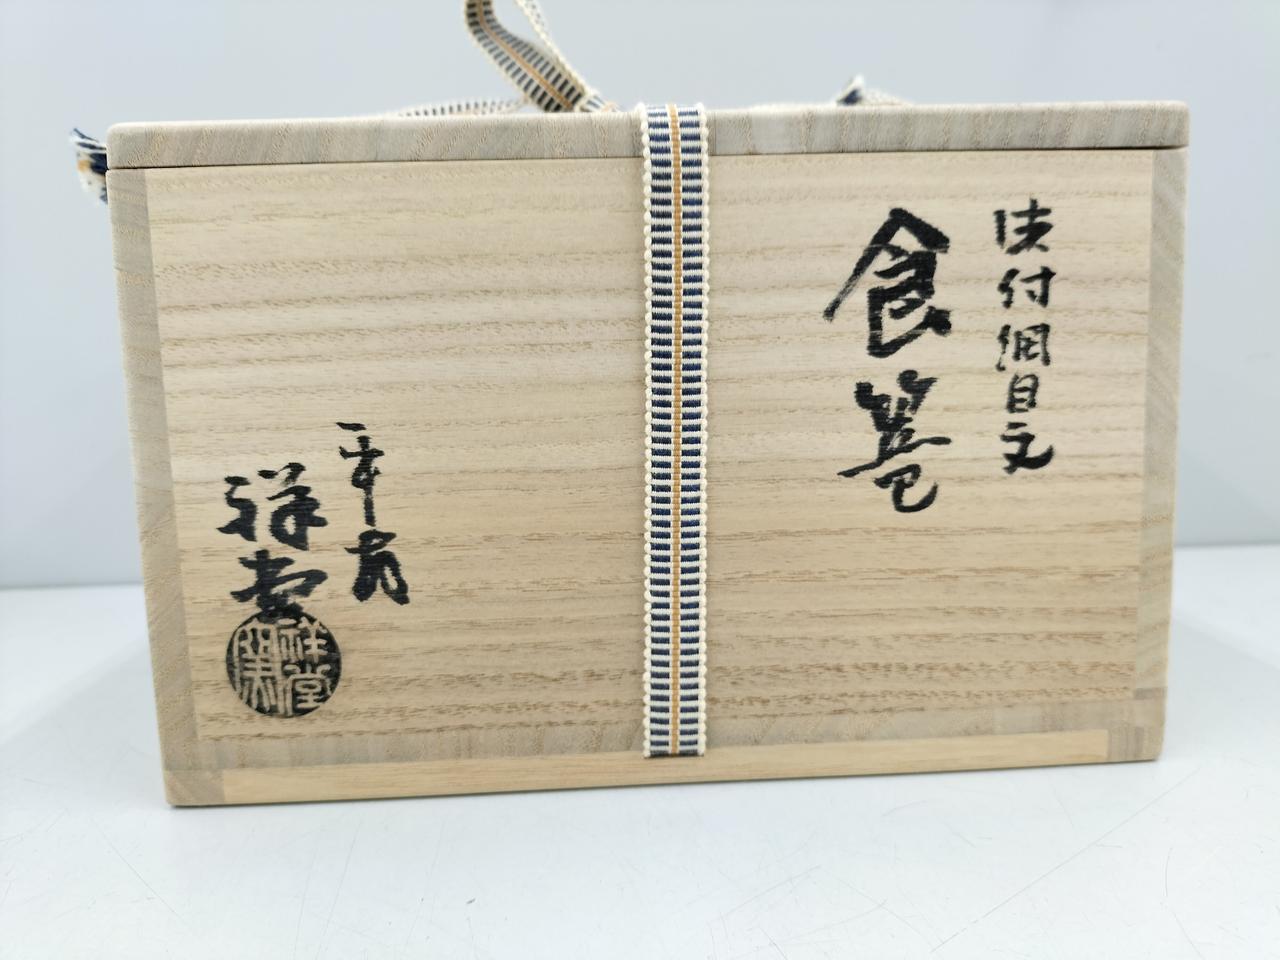 染付網目文
食篭
平安
祥堂
祥堂
窯